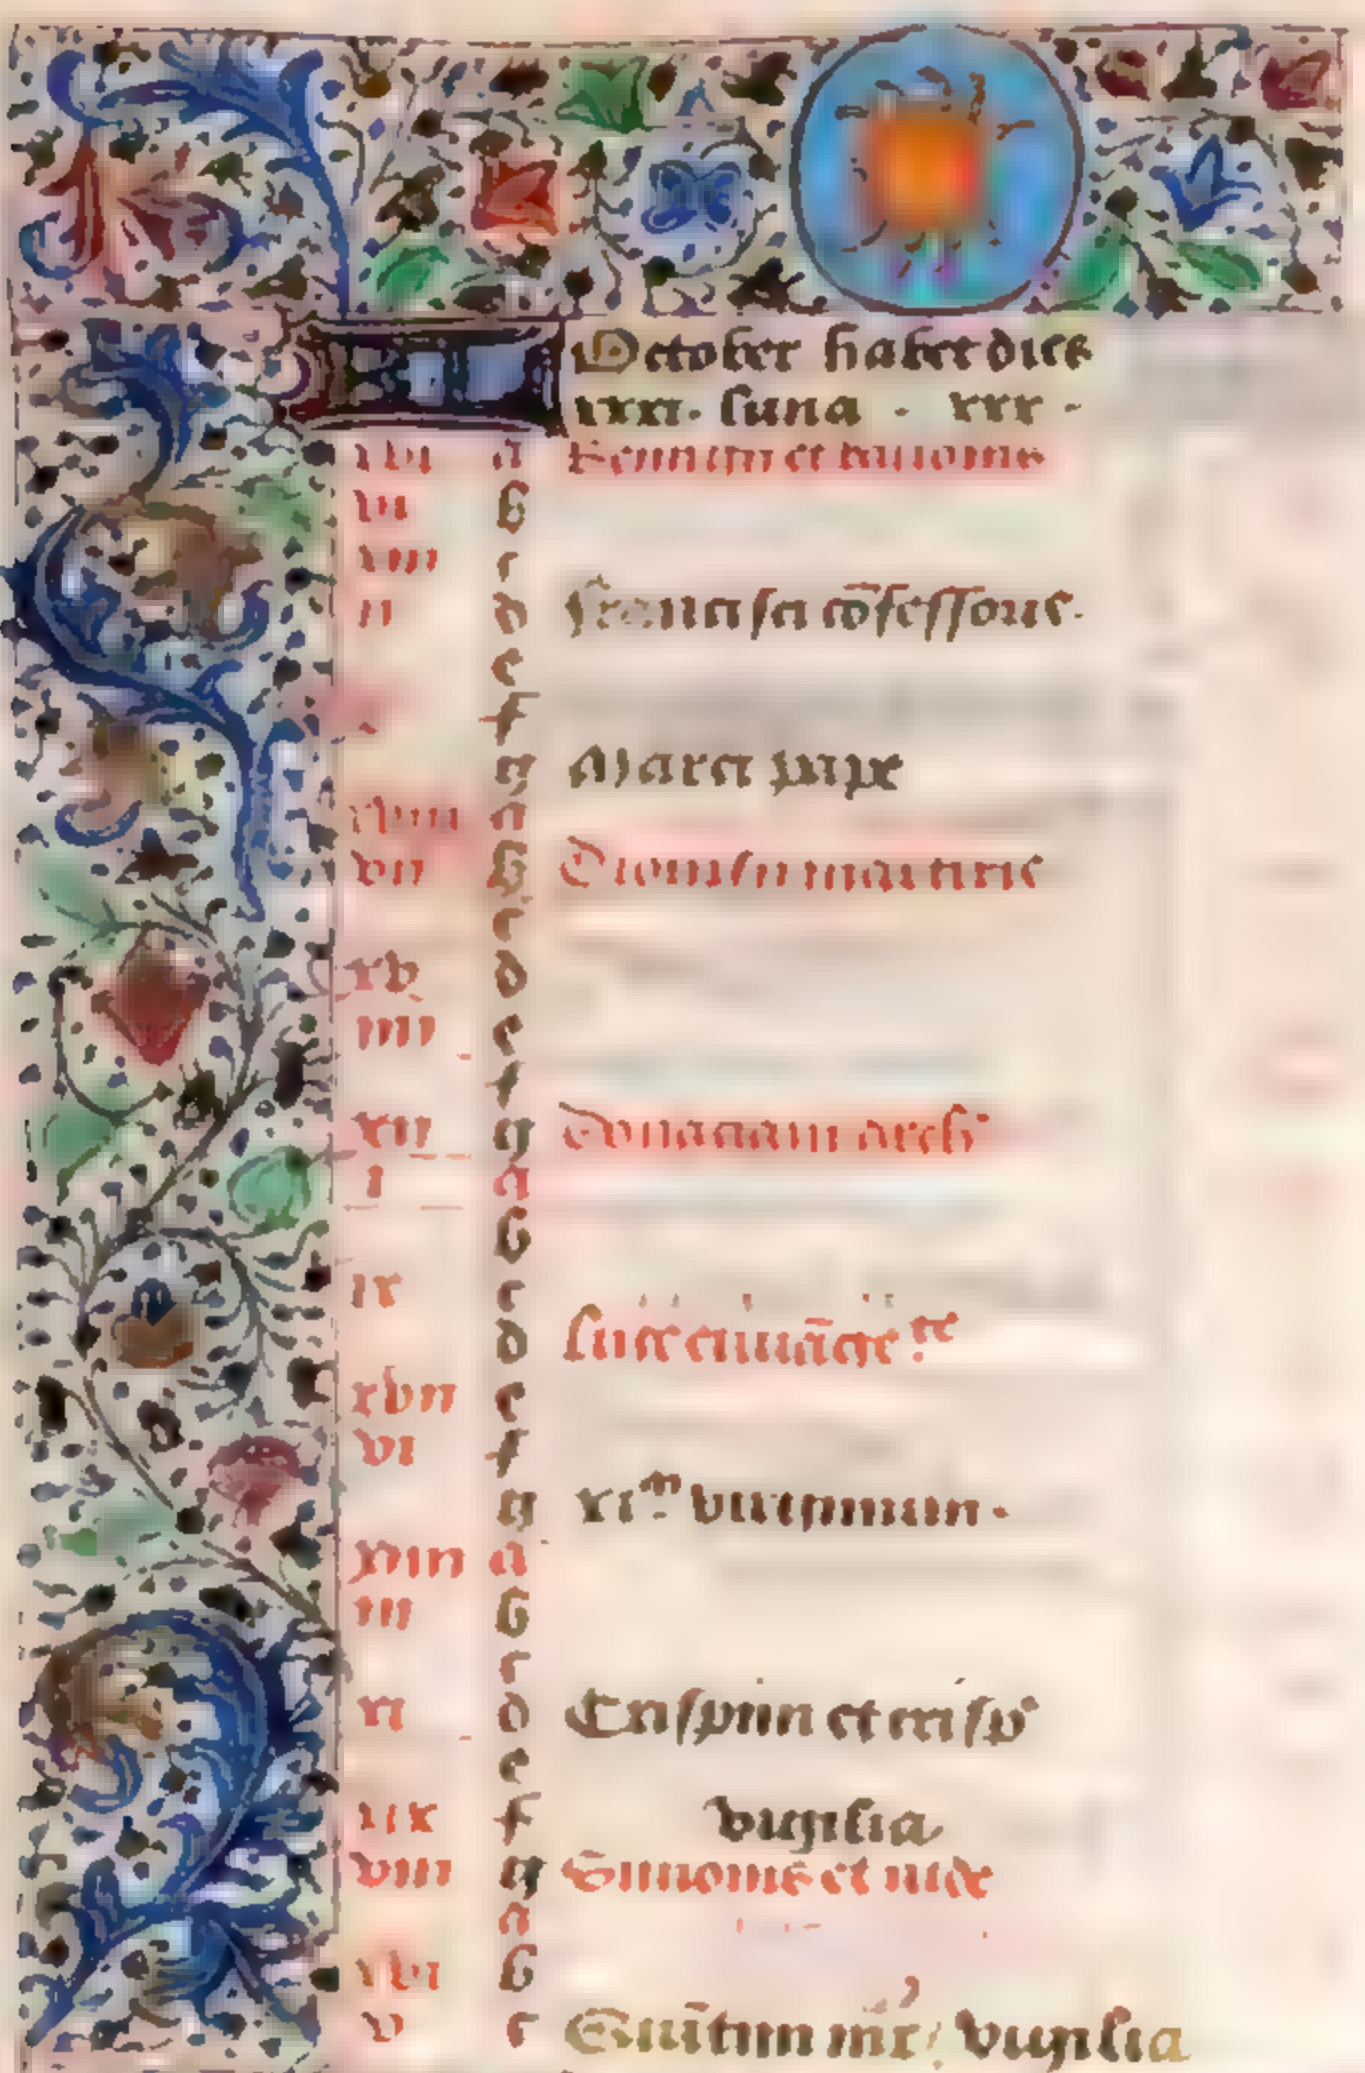 KL October habet dies
xxxi. luna. xxx.
xvi a Remigii et bavonis
vii b
xiii c
ii d Francisci cōfessoris.
e
f
g Marci pape
xviii a
vii b Dionisii martiris
c
xv d
iiii e
f
xii g Donaciani archi
i a
b
ix c
d Luce evvāgeᵗᵉ
xvii e
vi f
g xiᵐ virginum.
xiiii a
iii b
c
xi d Crispini et crisp
e
xix f vigilia
viii g Simonis et iude
a
xvi b
v c Quītini mr vigilia